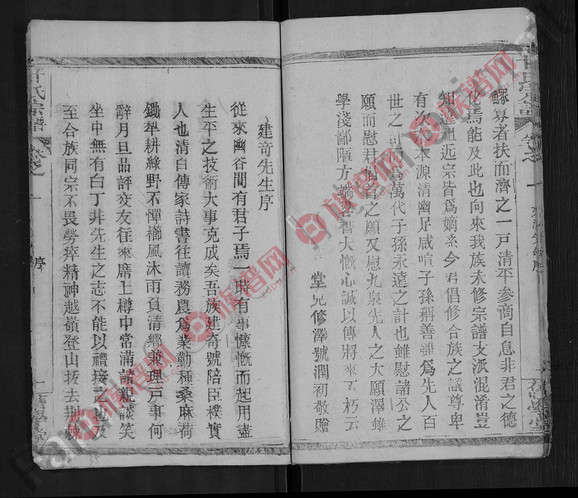 鰥寡者扶而濟之一戸清平參商自息非君之德
化焉能及此也向來我族未修宗譜支派混淆豈
知遠近宗皆爲嫡系今君倡修合族之議尊卑
有次木本源清幽足咸喧子孫稱善誰爲先人百
世之計爲萬代子孫永遠之計也雖慰諸公之
願而慰君儕者之願又慰九泉先人之大願澤雖
學淺鄙陋方端大慨心誠以傳將來不朽云
堂兄修澤號潤初敬贈
建竒先生序
從來幽谷間有君子焉一時有事慷慨而起用盡
生平之技術大事克成矣吾族建竒號陪臣樸實
人也清白傳家詩書往讀務農爲業勤種桑麻荷
鋤犂耕綠野不憚櫛風沐雨負清鄉兼理戸事何
辭月旦品評交友往來席上樽中常滿諸親談笑
坐中無有白丁非先生之志不能以禮接之
至合族同宗不畏勞瘁精神越嶺登山拨去荆棘
氏宗譜
族譜网